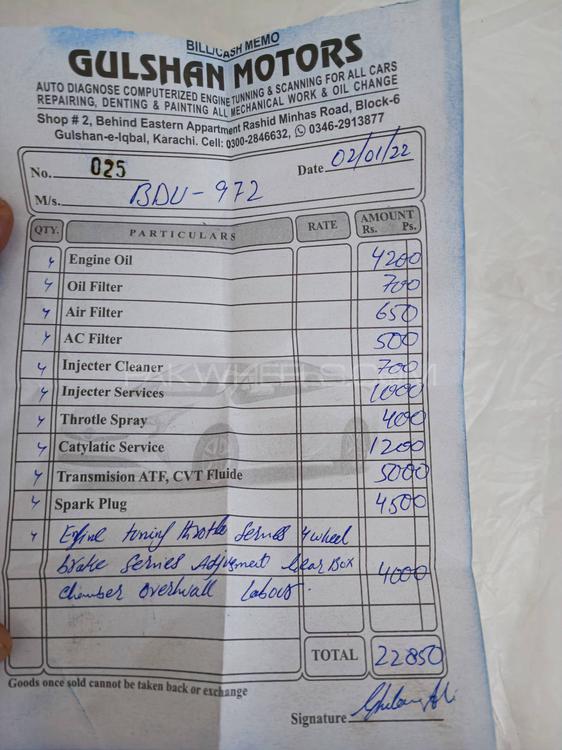 BILL/CASH MEMO
GULSHAN MOTORS
AUTO DIAGNOSE COMPUTERIZED ENGINE TUNNING & SCANNING FOR ALL CARS
REPAIRING, DENTING & PAINTING ALL MECHANICAL WORK & OIL CHANGE
Shop # 2, Behind Eastern Appartment Rashid Minhas Road, Block-6
Gulshan-e-Iqbal, Karachi. Cell: 0300-2846632, 0346-2913877
No. 025 Date 02/01/22
M/s. BDU-972
QTY. PARTICULARS RATE AMOUNT Rs. Ps.
Engine Oil 4200
Oil Filter 700
Air Filter 650
AC Filter 500
Injecter Cleaner 700
Injecter Services 1000
Throtle Spray 400
Catylatic Service 1200
Transmision ATF, CVT Fluide 5000
Spark Plug 4500
Engine tuning throttle Servies 4 wheel
brake Servies Adjusment Gear Box 4000
Chamber overhwall Labour.
TOTAL 22850
Goods once sold cannot be taken back or exchange
Signature